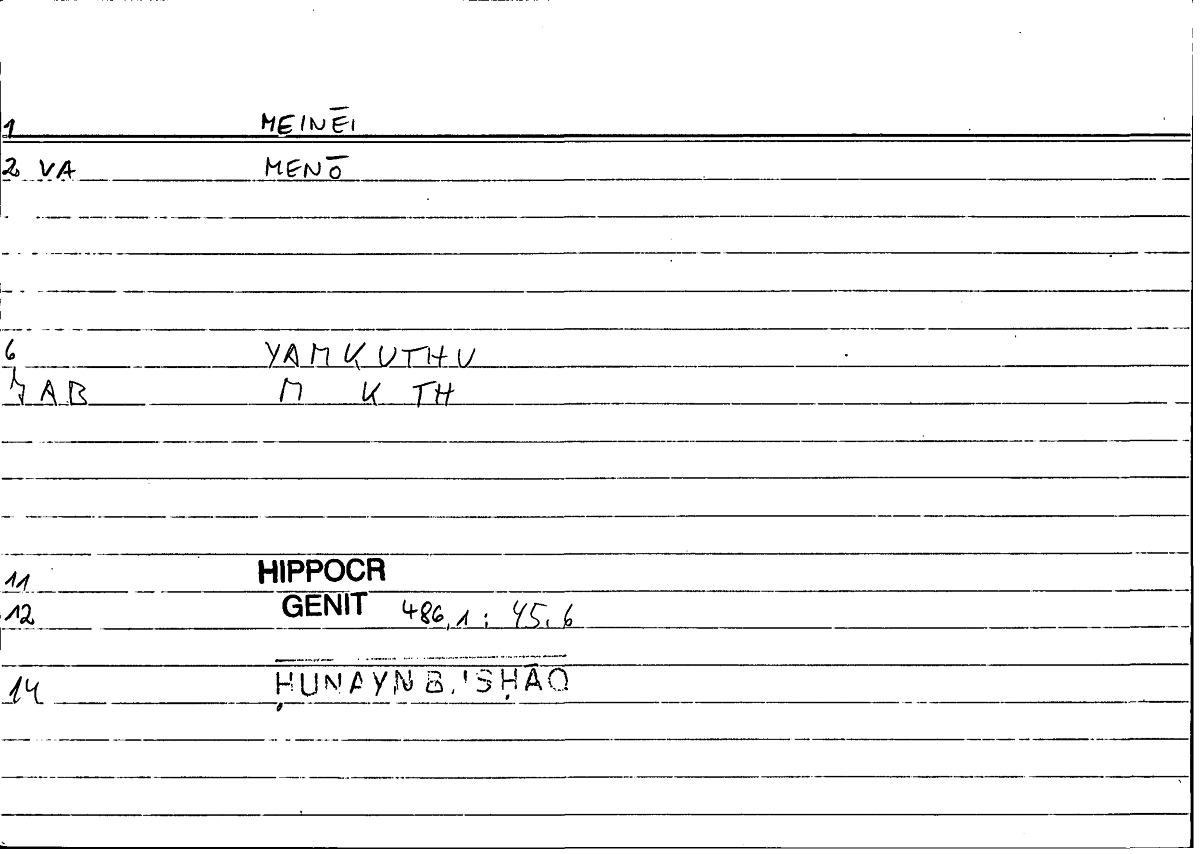 1 MEINĒI
2 VA MENŌ
6 YAMKUTHU
7 AB M K TH
11 HIPPOCR
12 GENIT 486,1 : 45.6
14 ḤUNAYN B. 'SḤĀQ